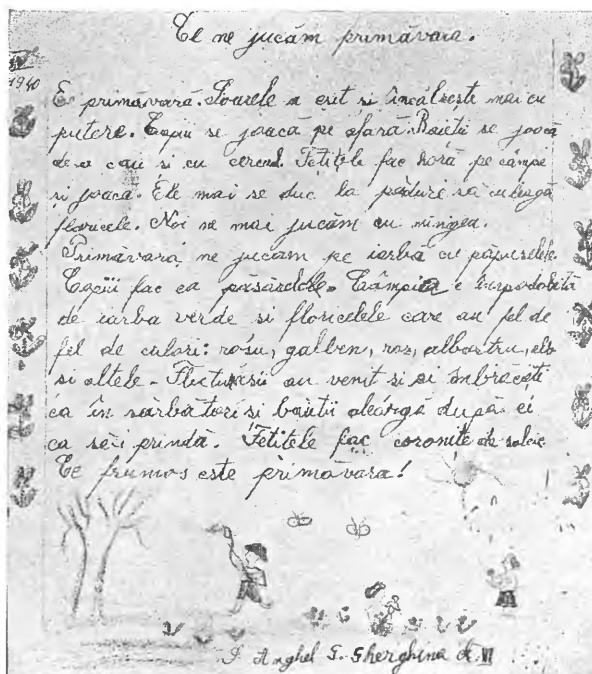 Ce ne jucăm primăvara.
IV
1940
E primăvară. Soarele a eșit si încălzește mai cu
putere. Copiii se joacă pe afară. Baietii se joacă
de-a caii si cu cercul. Fetitele fac horă pe câmpe
si joacă. Ele mai se duc la pădure să culeagă
floricele. Noi ne mai jucăm cu mingea.
Primăvară ne jucăm pe iarba cu păpuselele.
Copiii fac ca păsărelele. Câmpia e împodobită
de iarba verde si floricelele care au fel de
fel de culori: rosu, galben, roz, albastru, alb
si altele. Fluturasii au venit si ei îmbrăcati
ca în sărbători si baietii aleargă după ei
ca să-i prindă. Fetitele fac coronite de salcie
Ce frumos este primăvara!
Anghel G. Gherghina cl. VI